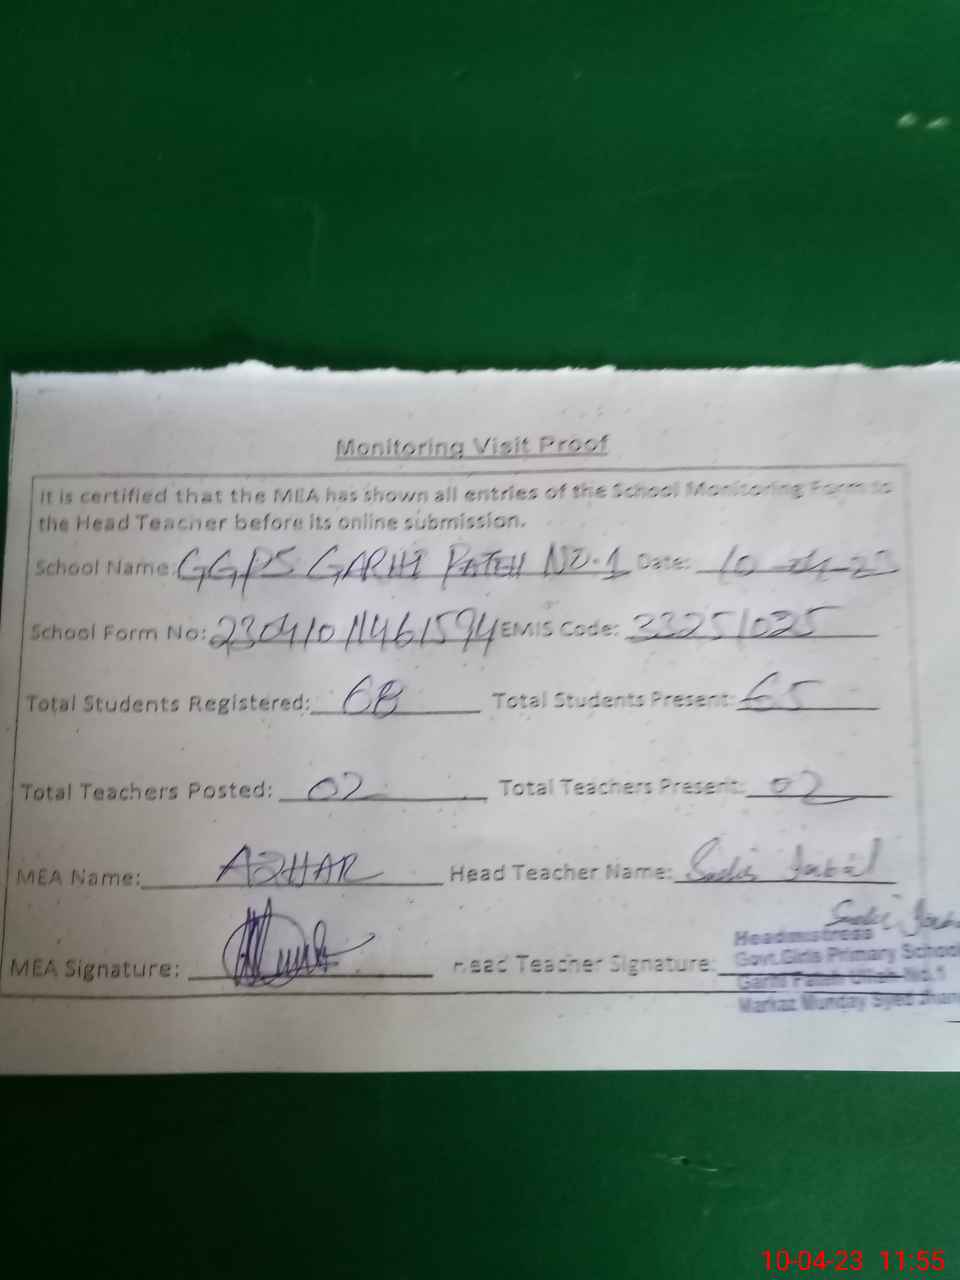 Monitoring Visit Proof
It is certified that the MEA has shown all entries of the School Monitoring Form to
the Head Teacher before its online submission.
School Name: GGPS GARHI FATEH NO.1 Date: 10-04-23
School Form No: 23041011461594 EMIS Code: 33251025
Total Students Registered: 68 Total Students Present: 65
Total Teachers Posted: 02 Total Teachers Present: 02
MEA Name: AZHAR Head Teacher Name:
MEA Signature: Head Teacher Signature:
Headmistress
Govt.Girls Primary School
Garhi Fateh Ullah No.1
Markaz Munday Syed Jhang
10-04-23 11:55